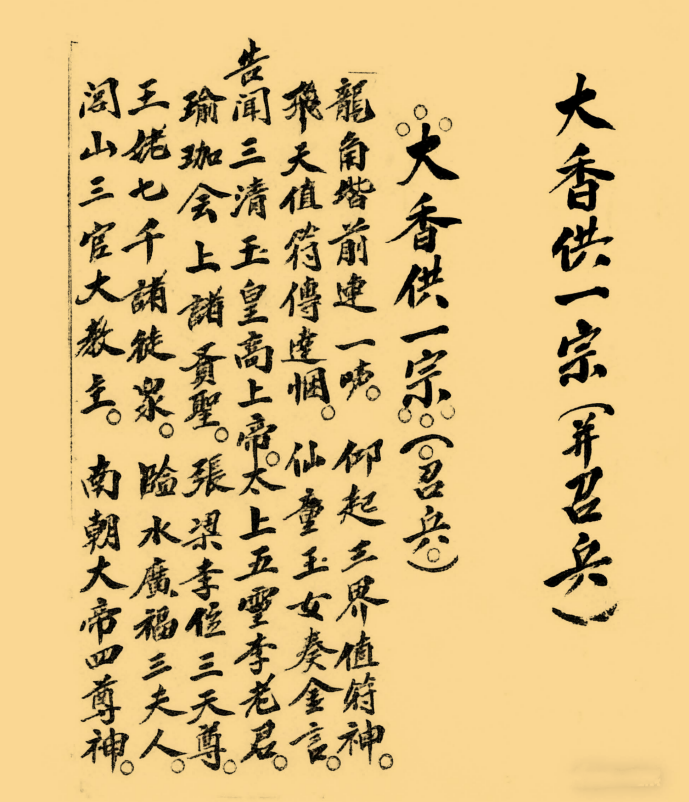 大香供一宗（并召兵）
大香供一宗（召兵）
龍角堦前連一吹。仰起三界值符神。
飛天值符傳達悃。仙童玉女奏金言。
告聞三清玉皇高上帝。太上五靈李老君。
瑜珈会上諸賢聖。張梁李伍三天尊。
王姥七千諸徒眾。臨水廣福三夫人。
閭山三官大教主。南朝大帝四尊神。